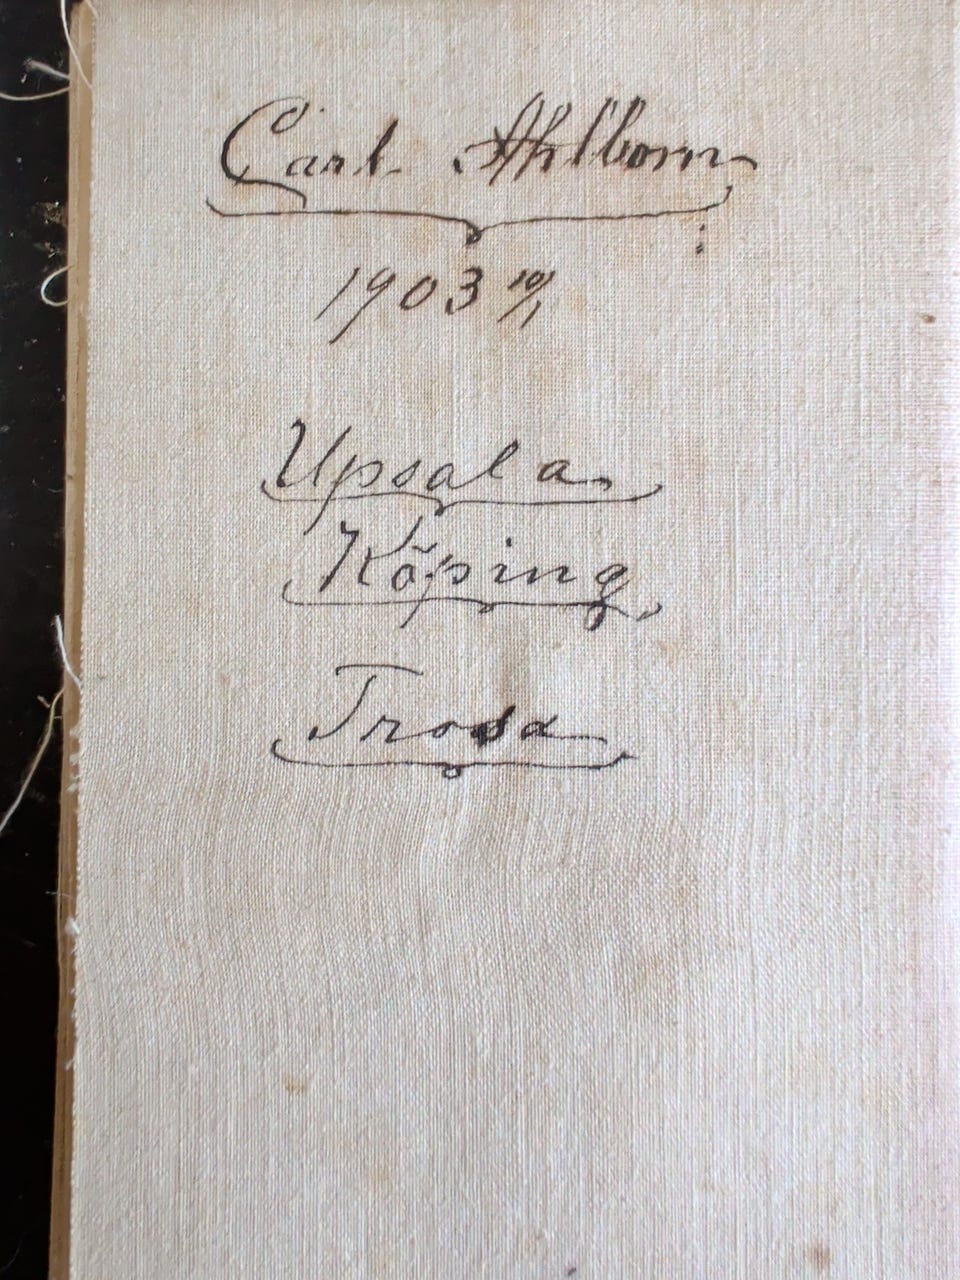 Carl Ahlborn
1903 10/1
Upsala
Köping
Trosa